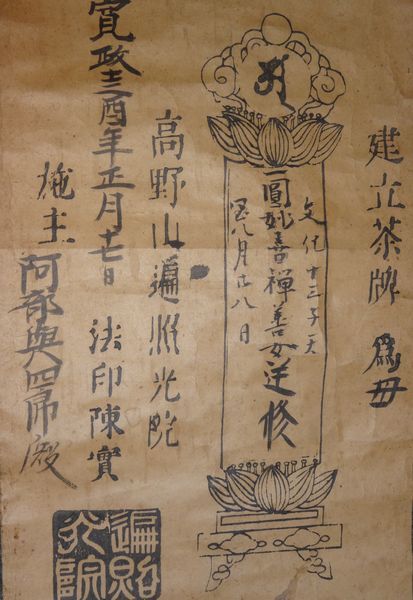 建立茶牌 為母
文化十三子天
一圓妙善禪善女逆修
閏八月廿八日
高野山遍照光院
法印陳實
寛政十三酉年正月十七日
施主 阿部與四郎殿
遍照光院